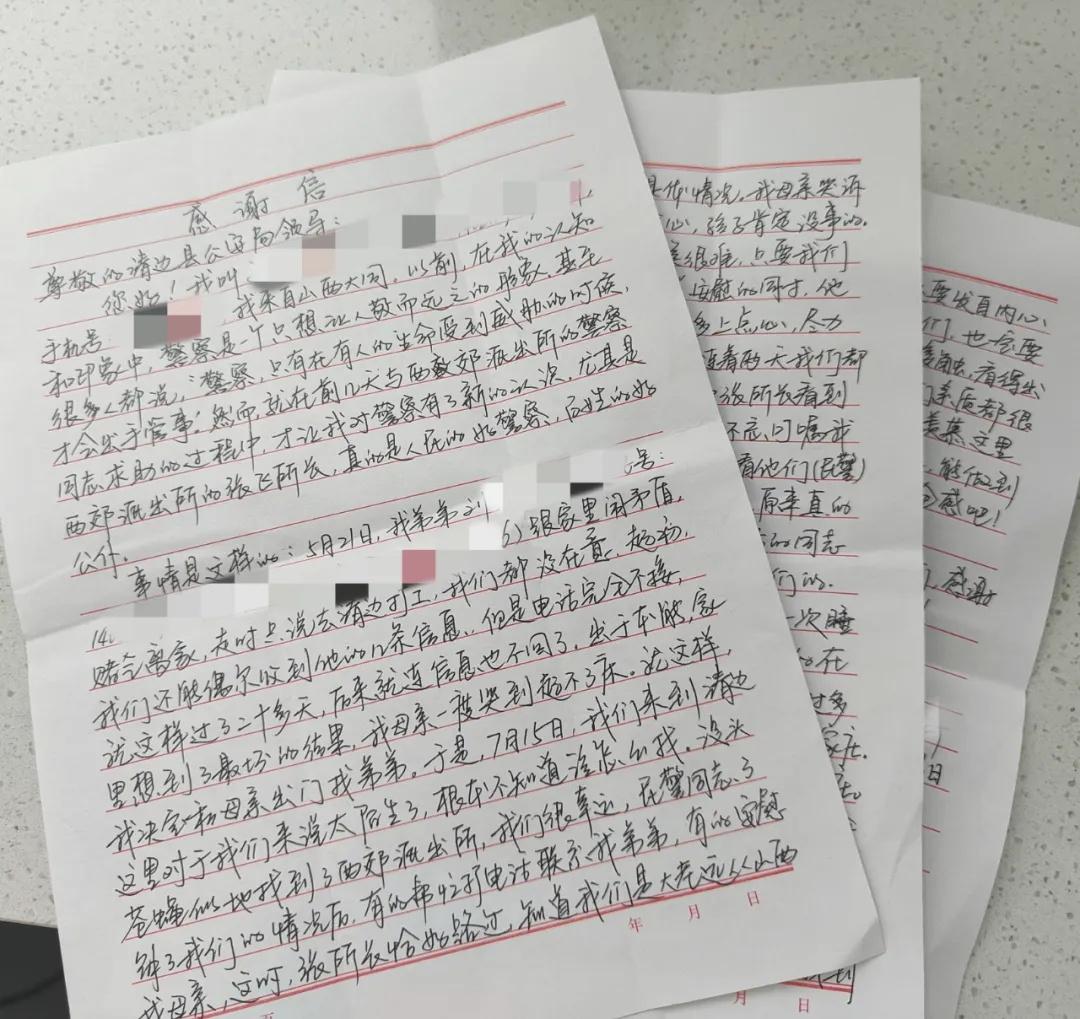 感谢信
尊敬的靖边县公安局领导：
您好！我叫
手机号：，我来自山西大同。以前，在我的认知
和印象中，警察是一个只想让人敬而远之的形象，甚至
很多人都说，“警察，只有在有人的生命受到威胁的时候，
才会出手管事！然而，就在前几天与西郊派出所的警察
同志求助的过程中，才让我对警察有了新的认次，尤其是
西郊派出所的张飞所长，真的是人民的好警察、百姓的好
公仆。
事情是这样的：5月21日，我弟弟刘
号：
14)跟家里闹矛盾，
赌气离家，走时只说去靖边打工，我们都没在意，起初，
我们还能偶尔收到他的几条信息，但是电话完全不接，
就这样过了二十多天，后来就连信息也不回了，出于本能，家
里想到了最坏的结果，我母亲一度哭到起不了床。就这样，
我决定和母亲出门找弟弟。于是，7月15日，我们来到靖边
这里对于我们来说太陌生了，根本不知道该怎么找。没头
苍蝇似地找到了西郊派出所，我们很幸运，民警同志了
解了我们的情况后，有的帮忙打电话联系我弟弟，有的安慰
我母亲，这时，张所长恰好路过，知道我们是大老远从山西
年 月 日
具体情况，我母亲哭诉
心，孩子肯定没事的。
很难，只要我们
安慰的同时，他
多上点心，尽力
连着两天我们都
张所长看到
不忘叮嘱我
看他们(民警)
原来真的
的同志
们的.
一次睡
的在
过多
家庄.
到
月 日
要发自内心
们，也会要
看得出
素质都很
羡慕这里
能做到
感吧！
感谢
日